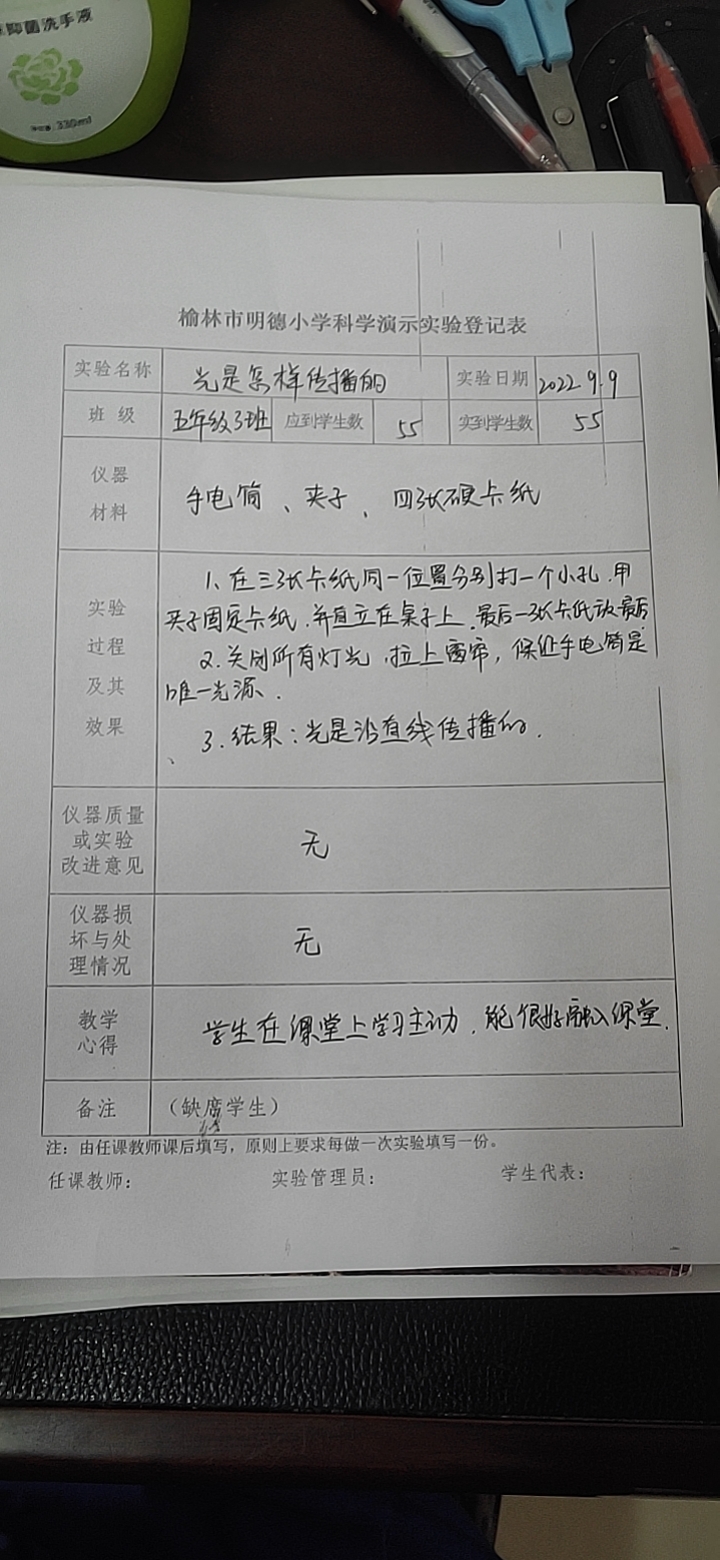 抑菌洗手液
330ml
榆林市明德小学科学演示实验登记表
实验名称 光是怎样传播的 实验日期 2022.9.9
班 级 五年级3班 应到学生数 55 实到学生数 55
仪器
材料
手电筒、夹子、四张硬卡纸
实验
过程
及其
效果
1.在三张卡纸同一位置分别打一个小孔.用
夹子固定卡纸.并直立在桌子上.最后一张卡纸放最后
2.关闭所有灯光,拉上窗帘,保证手电筒是
唯一光源.
3.结果:光是沿直线传播的.
仪器质量
或实验
改进意见
无
仪器损
坏与处
理情况
无
教学
心得
学生在课堂上学习主动.能很好融入课堂.
备注 (缺席学生)
注:由任课教师课后填写,原则上要求每做一次实验填写一份。
任课教师: 实验管理员: 学生代表: